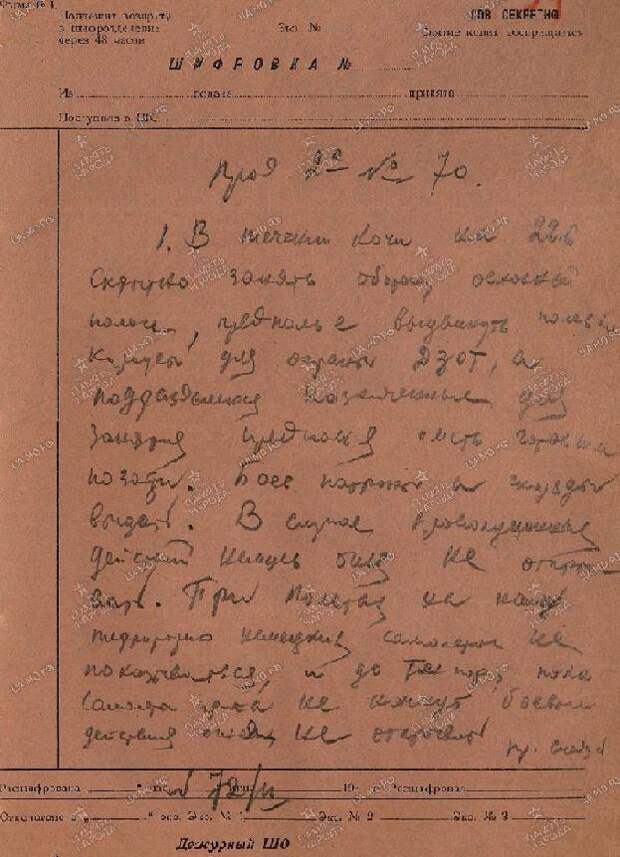 Форма № 1
Подлежит возврату
в шифротделение
через 48 часов
Экз. №
СОВ СЕКРЕТНО
Снятие копий воспрещается
ШИФРОВКА №
Из подана принята
Поступила в ШО
№ 70.
1. В течении ночи на 22.6
Скрытно занять оборону основной
полосы, предполье выдвинуть полевые
караулы для охраны ДЗОТ, а
подразделения назначенные для
занятия предполья иметь
позади. Боев патроны и снаряды
выдать. В случае провокационных
действий немцев огня не откры
вать. При полетах на нашу
территорию немецких самолетов не
показываться, и до тех пор, пока
самолеты не начнут боевых
действий огня не открывать
Расшифрована час. 19 г. Расшифровал
Отпечатано в экз. Экз. № 1 Экз. № 2 Экз. № 3
Дежурный ШО
ПАМЯТЬ НАРОДА
ЦАМО.РФ